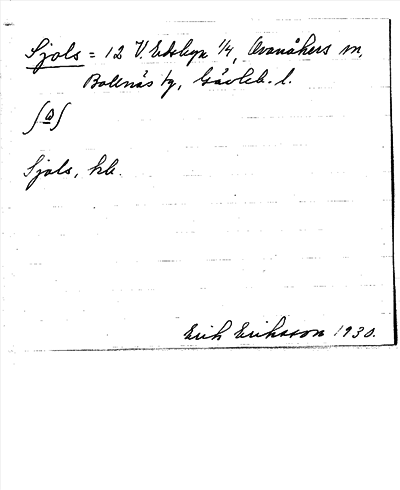 Sjols = 12 V. Edsbyn 1/4, Ovanåkers sn,
Bollnäs tg, Gävleb. l.
Sjols, hb.
Erik Eriksson 1930.